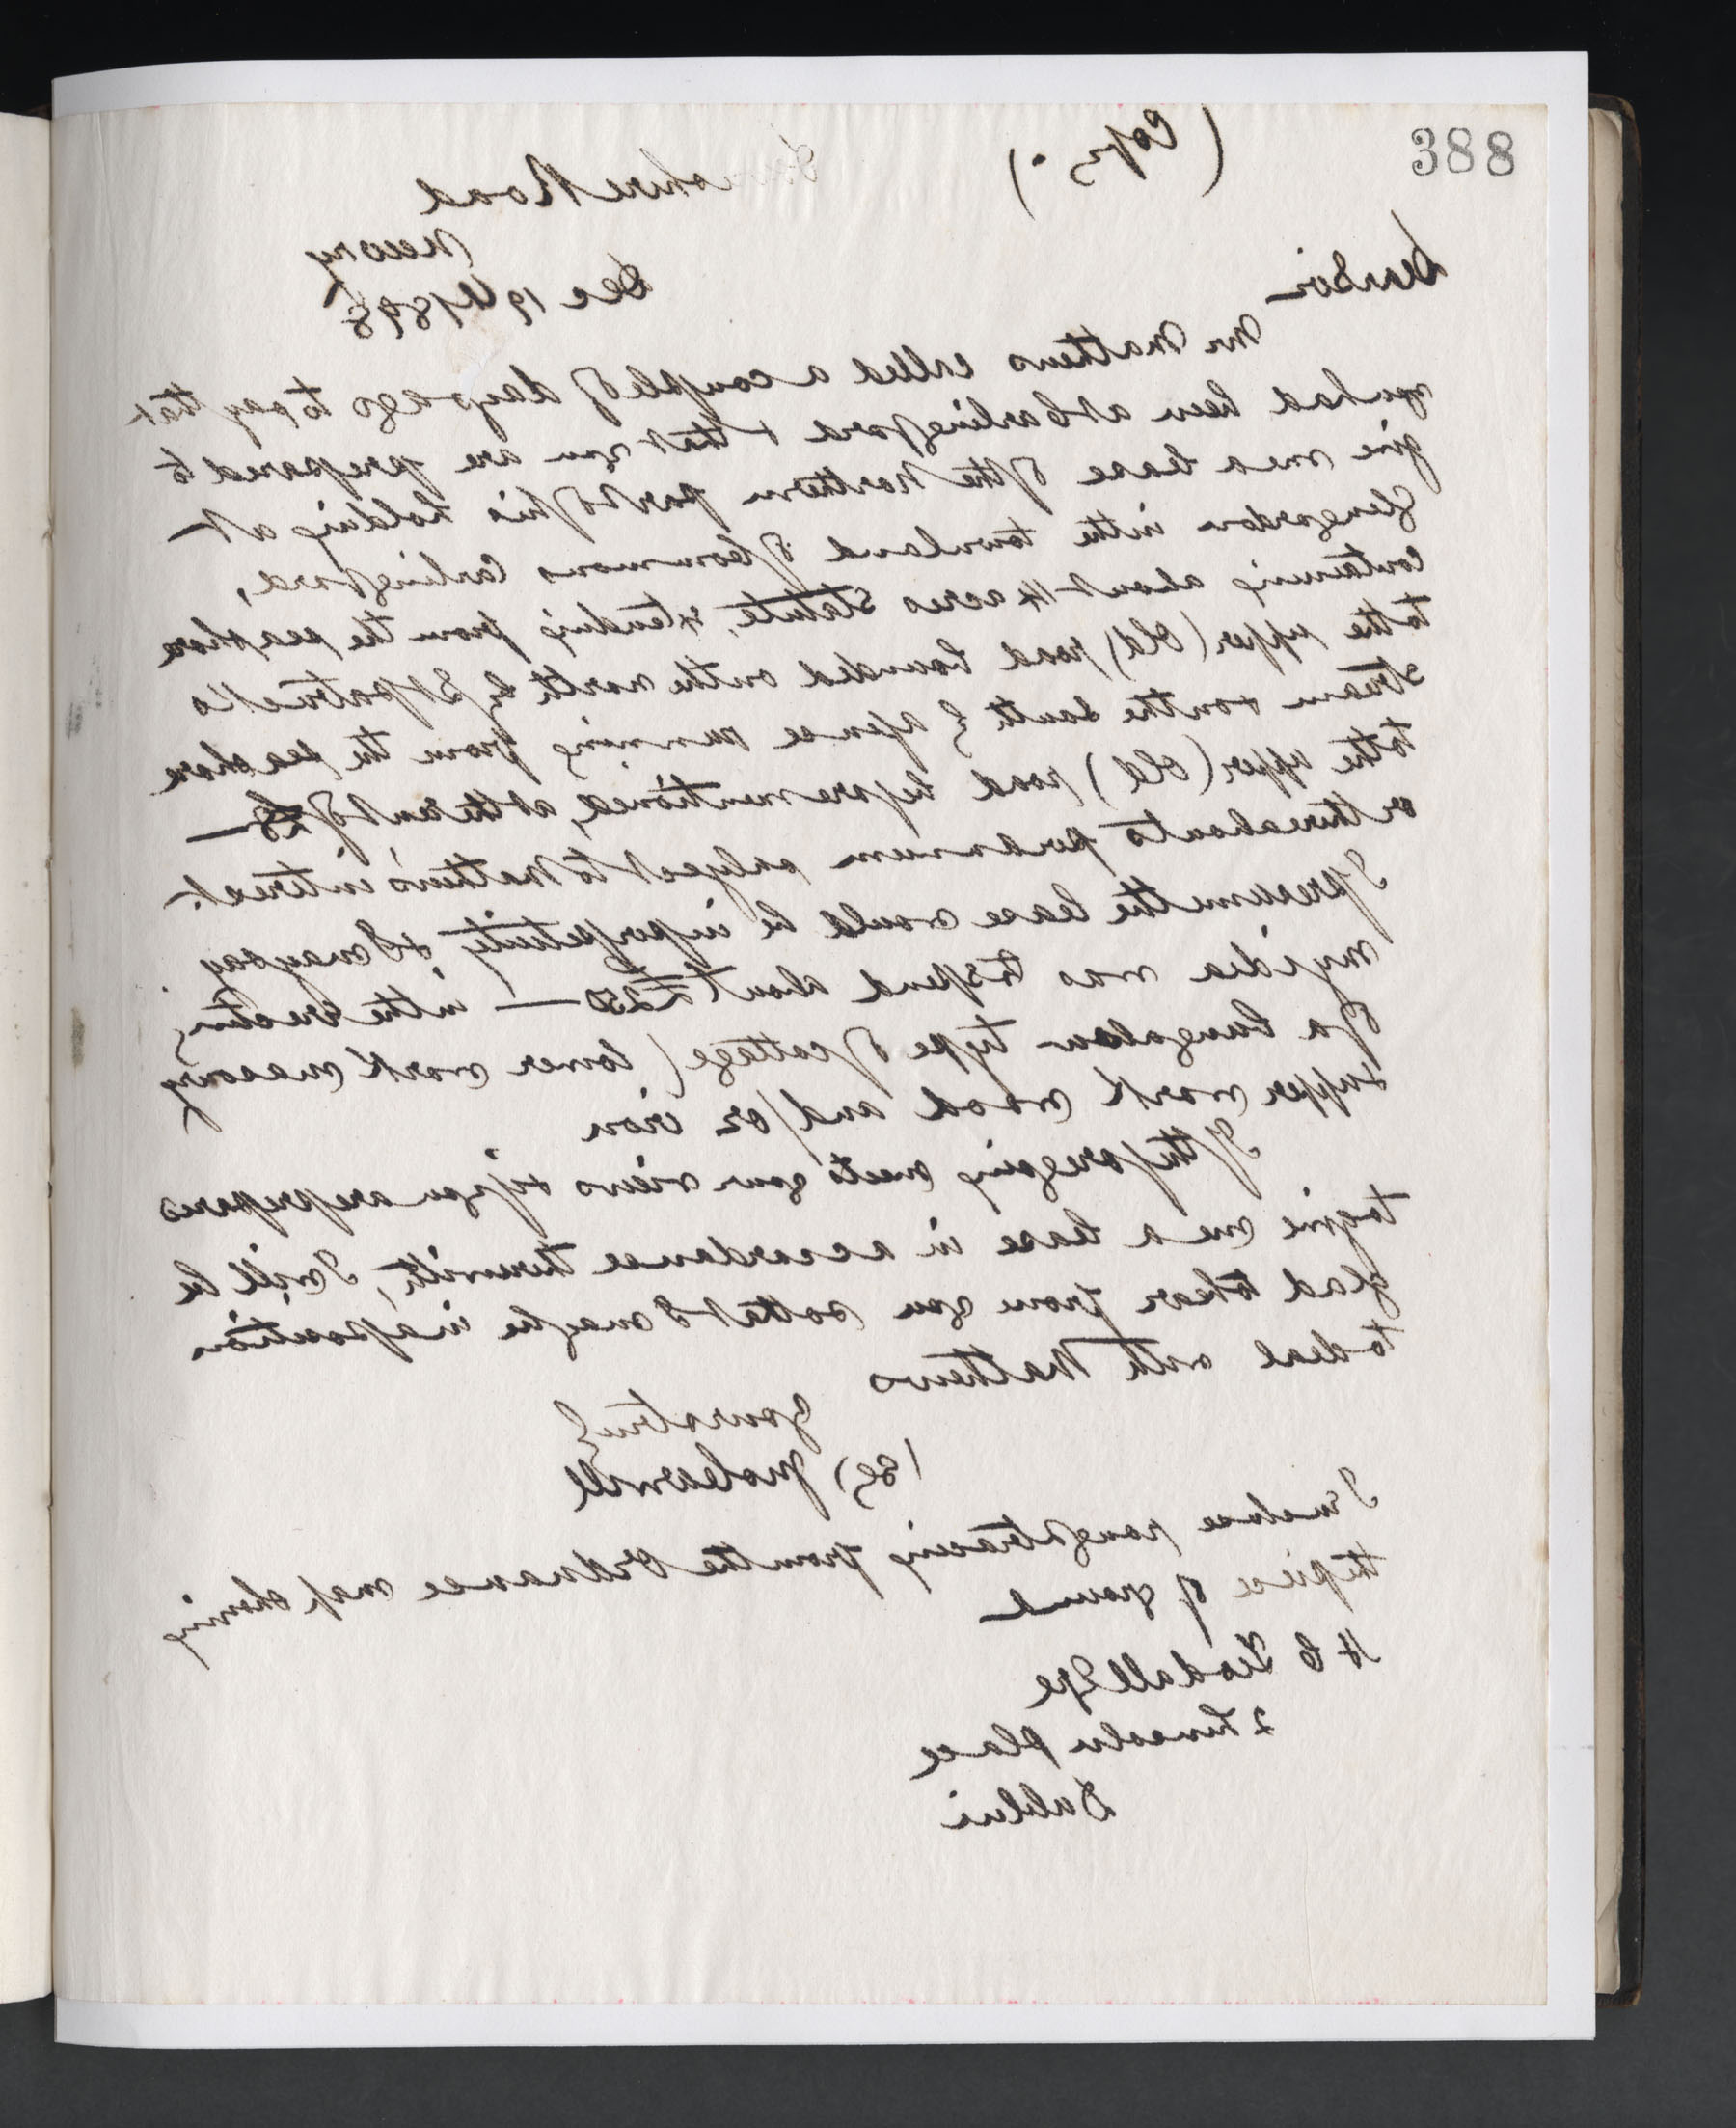 388
(Copy.)
Road
Newry
Dec 19th 1898
Dear Sir
Mr Mathews called a couple of days ago to say that
you had been at Carlingford & that you are prepared to
give me a lease of the Northern part of his holding at
in the townland of Commons Carlingford,
containing about 14 acres Statute, extending from the sea shore
to the upper (old) road bounded on the north by St Patrick's
stream & on the South by a fence running from the sea shore
to the upper (old) road before mentioned, at the rent of £8 —
or thereabouts per annum subject to Mathews' interest.
I presume the lease would be in perpetuity & I may say
my idea was to spend about £250 — in the erecting
of a bungalow type of cottage (lower work masonry
& upper work wood and/or iron
If the foregoing meets your views & if you are prepared
to give me a lease in accordance therewith, I will be
glad to hear from you so that I may be in a position
to deal with Mathews
yours truly
(Sg)
I enclose rough tracing from the Ordnance map showing
the piece of ground
H C Tisdall Esq
2 Lincoln place
Dublin